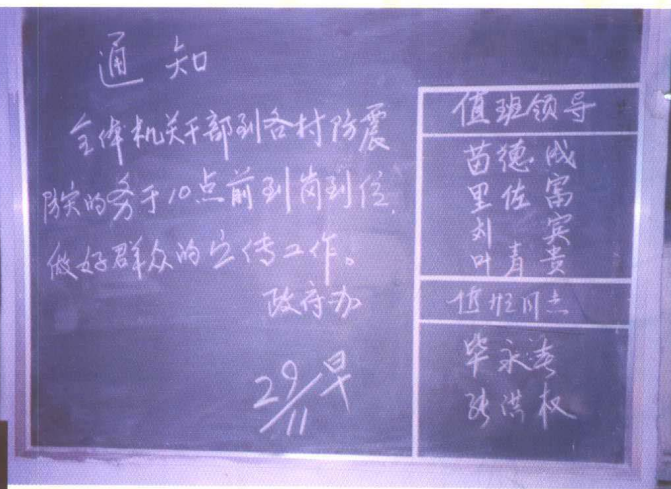 通知
全体机关干部到各村防震
防灾的务于10点前到岗到位,
做好群众的宣传工作。
政府办
29/11早
值班领导
苗德成
里佐富
刘宾
叶青贵
值班同志
毕永
张洪权